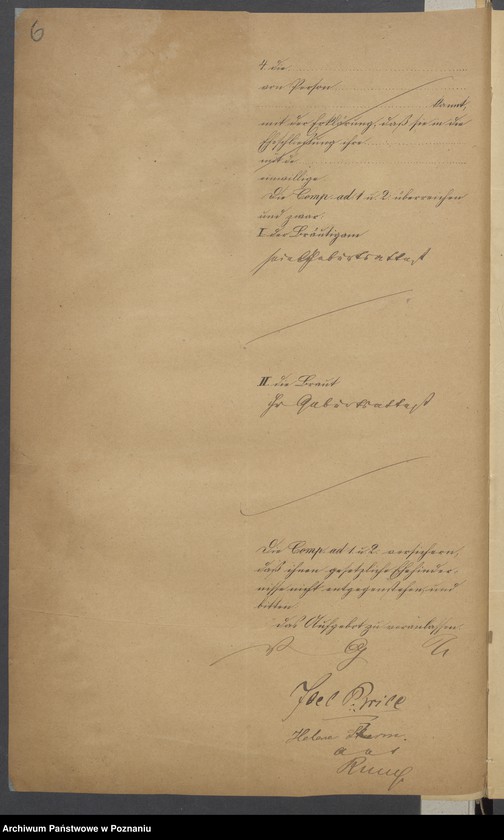 6
4 die
von Person
kannt,
mit der Erklärung, daß sie in die
Eheschließung ihre
mit de
einwillige.
Die Comp. ad 1 u. 2 überreichen
und zwar:
I der Bräutigam
sein Geburtsattest
II die Braut
ihr Geburtsattest
Die Comp. ad 1 u. 2. versichern,
daß ihnen gesetzliche Ehehinder-
nisse nicht entgegenstehen, und
bitten
das Aufgebot zu veranlassen.
v. g. u.
Joel
Helene
a u s
Archiwum Państwowe w Poznaniu